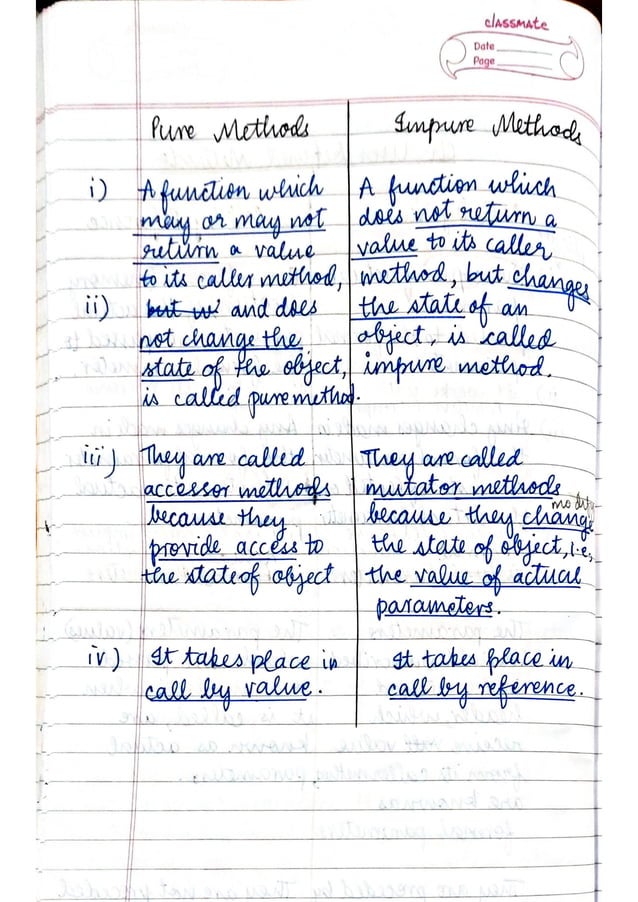 classmate
Date
Page
Pure Methods
i) A function which
may or may not
return a value
to its caller method,
ii) but w! and does
not change the
state of the object,
is called pure method.
iii) They are called
accessor methods
because they
provide access to
the state of object
iv) It takes place in
call by value.
Impure Methods
A function which
does not return a
value to its caller
method, but changes
the state of an
object, is called
impure method.
They are called
mutator methods
because they change
the state of object, i.e,
the value of actual
parameters.
It takes place in
call by reference.